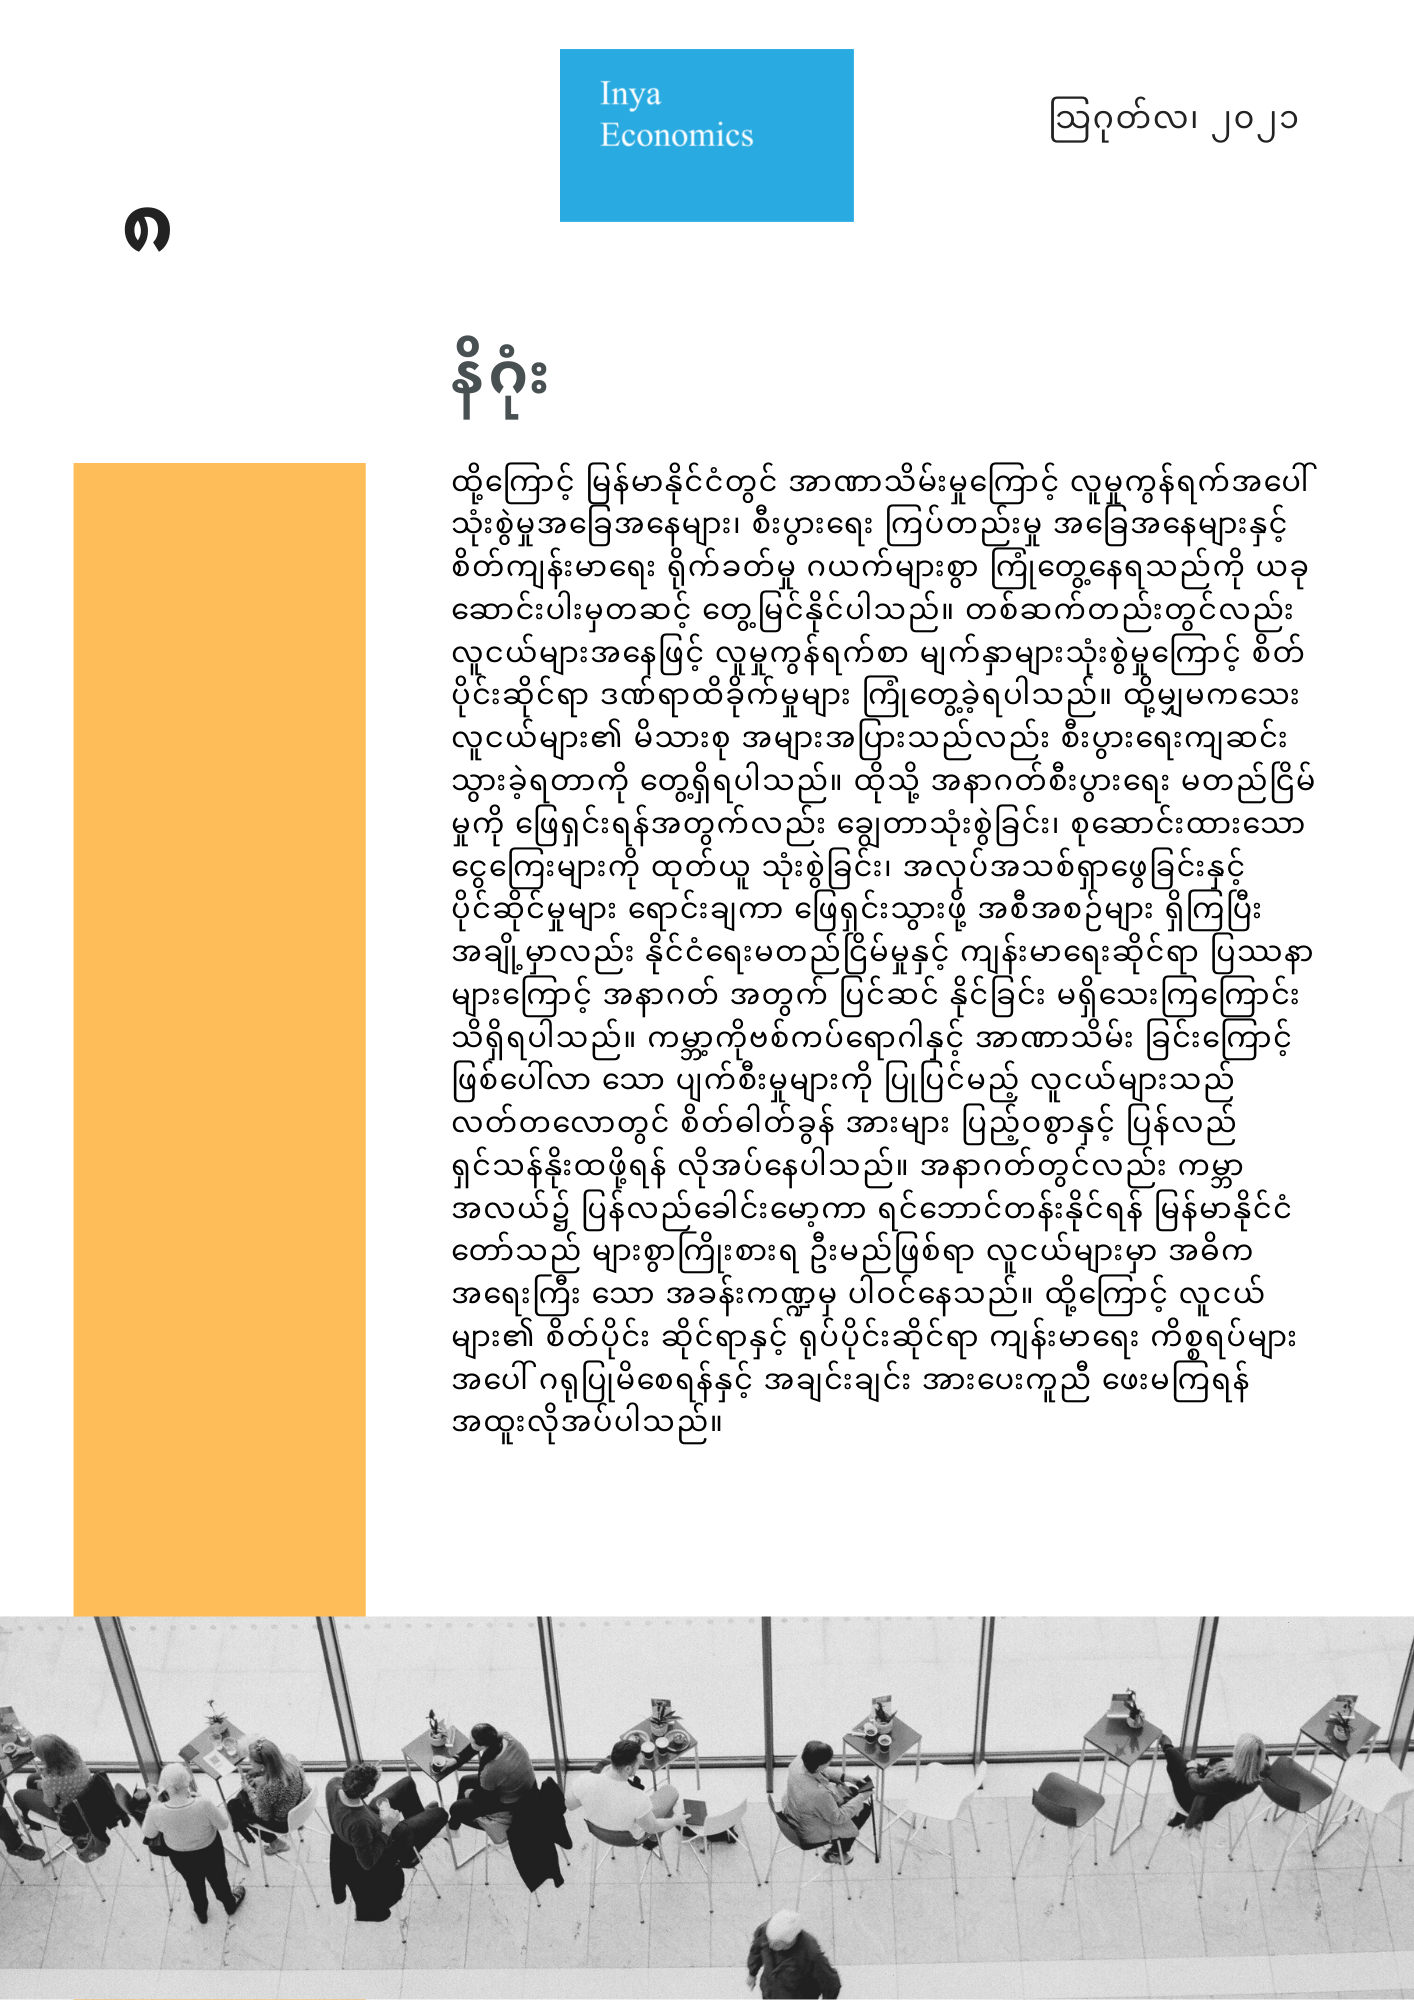 Inya
Economics
ဩဂုတ်လ၊ ၂၀၂၁
၈
နိဂုံး
ထို့ကြောင့် မြန်မာနိုင်ငံတွင် အာဏာသိမ်းမှုကြောင့် လူမှုကွန်ရက်အပေါ်
သုံးစွဲမှုအခြေအနေများ၊ စီးပွားရေး ကြပ်တည်းမှု အခြေအနေများနှင့်
စိတ်ကျန်းမာရေး ရိုက်ခတ်မှု ဂယက်များစွာ ကြုံတွေ့နေရသည်ကို ယခု
ဆောင်းပါးမှတဆင့် တွေ့မြင်နိုင်ပါသည်။ တစ်ဆက်တည်းတွင်လည်း
လူငယ်များအနေဖြင့် လူမှုကွန်ရက်စာ မျက်နှာများသုံးစွဲမှုကြောင့် စိတ်
ပိုင်းဆိုင်ရာ ဒဏ်ရာထိခိုက်မှုများ ကြုံတွေ့ခဲ့ရပါသည်။ ထို့မျှမကသေး
လူငယ်များ၏ မိသားစု အများအပြားသည်လည်း စီးပွားရေးကျဆင်း
သွားခဲ့ရတာကို တွေ့ရှိရပါသည်။ ထိုသို့ အနာဂတ်စီးပွားရေး မတည်ငြိမ်
မှုကို ဖြေရှင်းရန်အတွက်လည်း ချွေတာသုံးစွဲခြင်း၊ စုဆောင်းထားသော
ငွေကြေးများကို ထုတ်ယူ သုံးစွဲခြင်း၊ အလုပ်အသစ်ရှာဖွေခြင်းနှင့်
ပိုင်ဆိုင်မှုများ ရောင်းချကာ ဖြေရှင်းသွားဖို့ အစီအစဉ်များ ရှိကြပြီး
အချို့မှာလည်း နိုင်ငံရေးမတည်ငြိမ်မှုနှင့် ကျန်းမာရေးဆိုင်ရာ ပြဿနာ
များကြောင့် အနာဂတ် အတွက် ပြင်ဆင် နိုင်ခြင်း မရှိသေးကြကြောင်း
သိရှိရပါသည်။ ကမ္ဘာ့ကိုဗစ်ကပ်ရောဂါနှင့် အာဏာသိမ်း ခြင်းကြောင့်
ဖြစ်ပေါ်လာ သော ပျက်စီးမှုများကို ပြုပြင်မည့် လူငယ်များသည်
လတ်တလောတွင် စိတ်ဓါတ်ခွန် အားများ ပြည့်ဝစွာနှင့် ပြန်လည်
ရှင်သန်နိုးထဖို့ရန် လိုအပ်နေပါသည်။ အနာဂတ်တွင်လည်း ကမ္ဘာ
အလယ်၌ ပြန်လည်ခေါင်းမော့ကာ ရင်ဘောင်တန်းနိုင်ရန် မြန်မာနိုင်ငံ
တော်သည် များစွာကြိုးစားရ ဦးမည်ဖြစ်ရာ လူငယ်များမှာ အဓိက
အရေးကြီး သော အခန်းကဏ္ဍမှ ပါဝင်နေသည်။ ထို့ကြောင့် လူငယ်
များ၏ စိတ်ပိုင်း ဆိုင်ရာနှင့် ရုပ်ပိုင်းဆိုင်ရာ ကျန်းမာရေး ကိစ္စရပ်များ
အပေါ် ဂရုပြုမိစေရန်နှင့် အချင်းချင်း အားပေးကူညီ ဖေးမကြရန်
အထူးလိုအပ်ပါသည်။